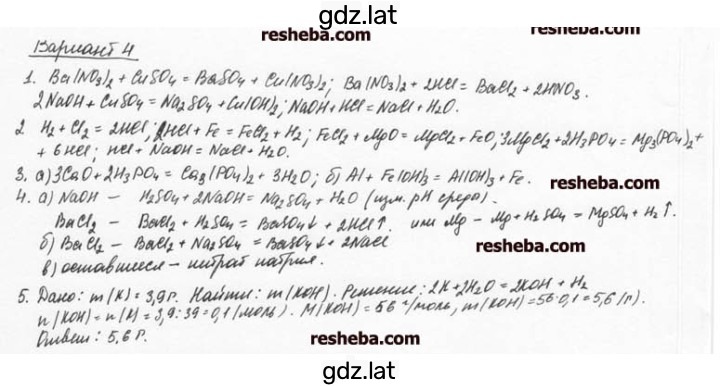 gdz.lat
resheba.com
resheba.com
Вариант 4
1. Ba(NO3)2 + CuSO4 = BaSO4 + Cu(NO3)2; Ba(NO3)2 + 2HCl = BaCl2 + 2HNO3.
2NaOH + CuSO4 = Na2SO4 + Cu(OH)2; NaOH + HCl = NaCl + H2O.
2. H2 + Cl2 = 2HCl; 2HCl + Fe = FeCl2 + H2; FeCl2 + MgO = MgCl2 + FeO; 3MgCl2 + 2H3PO4 = Mg3(PO4)2 +
+ 6HCl; HCl + NaOH = NaCl + H2O.
3. а) 3CaO + 2H3PO4 = Ca3(PO4)2 + 3H2O; б) Al + Fe(OH)3 = Al(OH)3 + Fe.
resheba.com
4. а) NaOH – H2SO4 + 2NaOH = Na2SO4 + H2O (изм. pH среда).
BaCl2 – BaCl2 + H2SO4 = BaSO4↓ + 2HCl↑. или Mg – Mg + H2SO4 = MgSO4 + H2↑.
б) BaCl2 – BaCl2 + Na2SO4 = BaSO4↓ + 2NaCl
resheba.com
в) оставшееся – нитрат натрия.
5. Дано: m(K) = 3,9г. Найти: m(KOH). Решение: 2K + 2H2O = 2KOH + H2
n(KOH) = n(K) = 3,9:39 = 0,1 (моль). M(KOH) = 56 г/моль, m(KOH) = 56·0,1 = 5,6 (г).
Ответ: 5,6 г.
resheba.com
resheba.com
gdz.lat